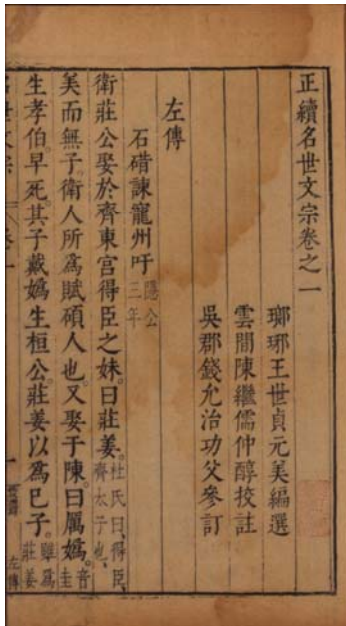 正續名世文宗卷之一
瑯琊王世貞元美編選
雲間陳繼儒仲醇挍註
吳郡錢允治功父參訂
左傳
石碏諫寵州吁 隱公三年
衛莊公娶於齊東宮得臣之妹曰莊姜。杜氏曰、得臣、齊太子也、
美而無子。衛人所為賦碩人也。又娶于陳。曰厲媯。音圭
生孝伯。早死。其子戴媯生桓公。莊姜以為已子。雖為莊姜
名世文宗 卷一
左傳